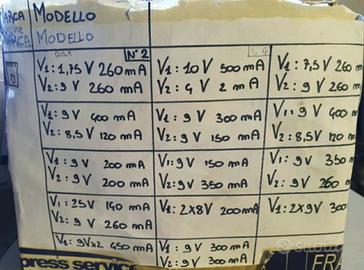 MARCA MODELLO
MARCA MODELLO
N°2
V1: 1,75 V 260 mA
V2: 9 V 260 mA
V1: 10 V 500 mA
V2: 4 V 2 mA
V1: 7,5 V 260
V2: 9 V 260
V1: 9 V 400 mA
V2: 8,5 V 120 mA
V1: 9 V 300 mA
V2: 9 V 150 mA
V1: 9 V 400
V2: 8,5 V 120
V1: 9 V 200 mA
V2: 9 V 200 mA
V1: 9 V 150 mA
V2: 9 V 350 mA
V1: 9 V 350
V2: 9 V 260
V1: 25 V 140 mA
V2: 9 V 260 mA
V1: 2x8 V 200 mA
V1: 2x9 V 300
V1: 9 V x2 450 mA
V1: 9 V 300 mA
V2: 9 V 300 mA
press service
FRA